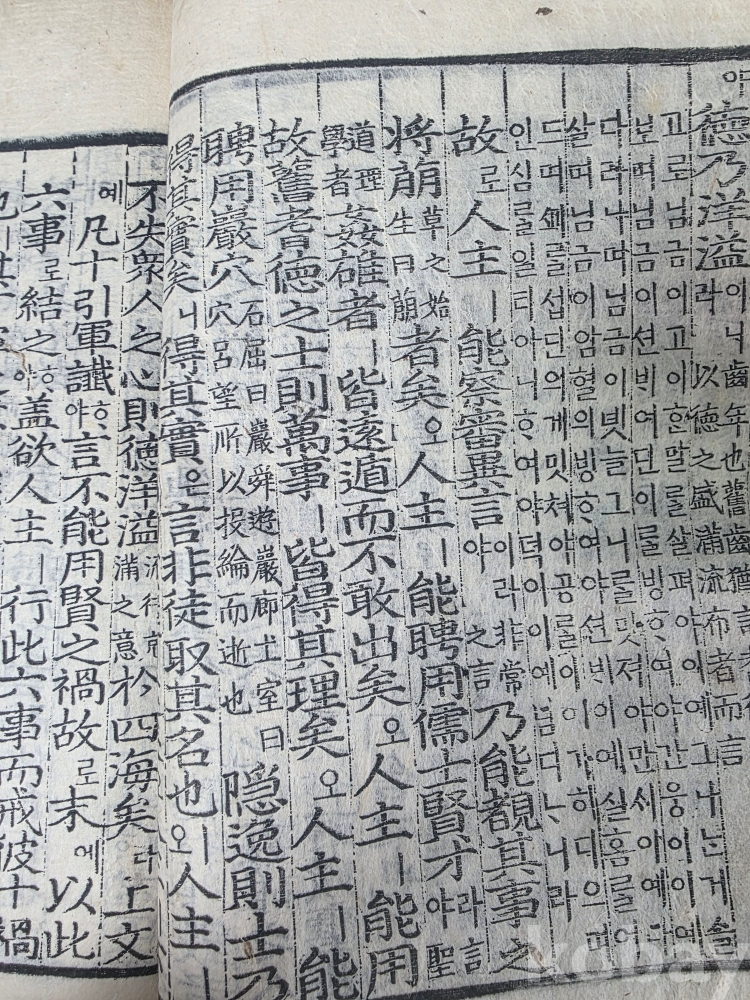 야德乃洋溢이니라 齒年也舊齒猶言 以德之盛滿流布者而言
고로님금이고이ᄒᆞᆫ말ᄅᆞᆯ살펴야이예그나ᄂᆞᆫ게
보며님금이션비여딘이ᄅᆞᆯ방ᄒᆞ여야간웅이이예
다라나며님금이녯늘그니ᄅᆞᆯ맛져야만
살며님금이암혈의방ᄒᆞ여야션비이예실홈ᄅᆞᆯ어
드며 섭단의게밋쳐야공ᄅᆞᆯ 가히다으며
인심ᄅᆞᆯ일티아니ᄒᆞ여야덕이이예넘디ᄂᆞ니라
故로人主ㅣ能察審異言야이라非常之言乃能覩其事之
將萌草之始生曰萌者矣오人主ㅣ能聘用儒士賢才야라言聖
道理學者姦雄者ㅣ皆遠遁而不敢出矣오人主ㅣ能用
故舊耆德之士則萬事ㅣ皆得其理矣오人主ㅣ能
聘用巖穴石窟曰巖舜遊巖廊土室曰穴呂望所以投綸而逝也隱逸則士乃
得其實矣니得其實은言非徒取其名也오人主ㅣ
不失衆人之心則德洋溢流行充滿之意於四海矣라上文
예凡十引軍讖ᄒᆞ야言不能用賢之禍故로末에以此
六事로結之ᄒᆞ야盖欲人主ㅣ行此六事而戒彼十禍
也ㅣ其
kobay